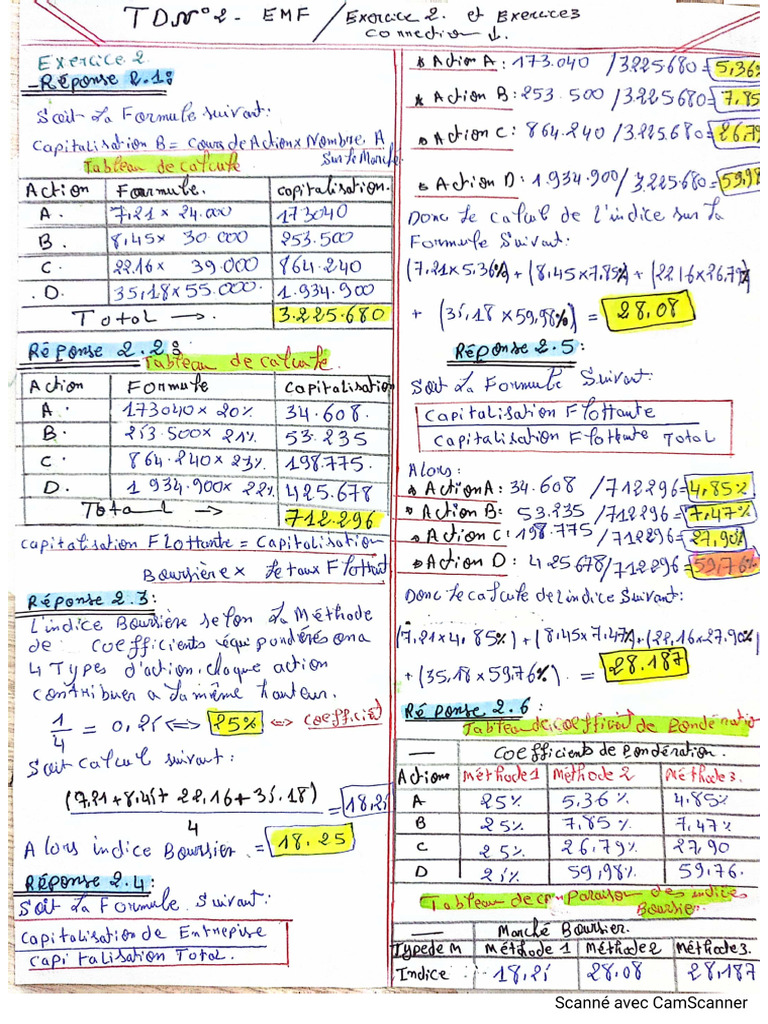 TD N°2 - EMF / Exercice 2. et Exercice 3
connection ↓.
Exercice 2.
- Réponse 2.1:
Soit la Formule suivant:
Capitalisation B = Cours de Action x Nombre A
Sur le Marché
Tableau de calcule
Action Foormule. Capitalisation.
A. 7,21 x 24.000 173040
B. 8,45 x 30 000 253.500
C. 22.16 x 39.000 864.240
.D. 35,18 x 55.000. 1.934.900
Total → 3.225.680
Réponse 2.2:
Tableau de calcule
Action Formule Capitalisation
A. 173040 x 20% 34.608.
B. 253.500 x 21% 53.235
C 864.240 x 23% 198.775.
D. 1 934.900 x 22% 425.678
Total → 712.296
Capitalisation Flottante = Capitalisation
Boursière x le taux Flottant
Réponse 2.3:
L'indice Boursière selon la Méthode
de: Coefficients équipondérés on a
4 Types d'action. chaque action
contribuer a la même hauteur.
1/4 = 0,25 <=> 25% <=> coefficiét
Soit calcul suivant:
(7,21 + 8,45 + 22,16 + 35.18) / 4 = 18,25
Alors indice Boursier = 18.25
Réponse 2.4:
Soit la Formule Suivant:
Capitalisation de Entrepise
Capitalisation Total.
Action A: 173.040 / 3.225.680 = 5,36%
Action B: 253.500 / 3.225.680 = 7.85
Action C: 864.240 / 3.225.680 = 26,79
Action D: 1.934.900 / 3.225.680 = 59,98
Donc le calcul de l'indice sur la
Formule Suivant:
(7,21 x 5,36%) + (8,45 x 7,85%) + (22,16 x 26,79%)
+ (35,18 x 59,98%) = 28.08
Réponse 2.5:
Soit la Formule Suivant:
Capitalisation Flottante
Capitalisation Flottante Total
Alors:
Action A: 34.608 / 712296 = 4,85%
Action B: 53.235 / 712296 = 7,47%
Action C: 198.775 / 712296 = 27,90%
Action D: 425678 / 712296 = 59,76%
Donc le calcule de l'indice Suivant:
(7,21 x 4,85%) + (8,45 x 7,47%) + (22,16 x 27.90%)
+ (35,18 x 59,76%). = 28.187
Réponse 2.6:
Tableau de coefficiét de Pondération
— Coefficients de Pondération.
Action Méthode 1 Méthode 2 Méthode 3.
A 25% 5,36% 4,85%
B 25% 7,85% 7,47%
C 25% 26,79% 27,90
D 25% 59,98% 59,76.
Tableau de comparaison des indices
Boursier.
— Marché Boursier.
Type de M Méthode 1 Méthode 2 Méthode 3.
Indice 18,25 28.08 28,187
Scanné avec CamScanner